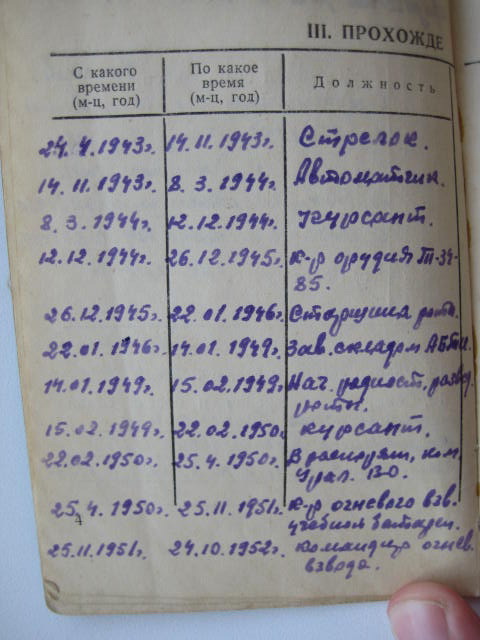 III. ПРОХОЖДЕ
С какого времени (м-ц, год) По какое время (м-ц, год) Должность
24.4.1943г. 14.11.1943г. Стрелок.
14.11.1943г. 8.3.1944г. Автоматчик.
8.3.1944г. 12.12.1944г. Курсант.
12.12.1944г. 26.12.1945г. к-р орудия Т-34-
85.
26.12.1945г. 22.01.1946г. Старшина роты.
22.01.1946г. 14.01.1949г. Зав. складом АБТИ.
14.01.1949г. 15.02.1949г. Нач. радиост. развед
роты.
15.02.1949г. 22.02.1950г. курсант.
22.02.1950г. 25.4.1950г. В распоряж. ком.
Урал. ВО.
25.4.1950г. 25.11.1951г. К-р огневого взв.
учебной батареи.
25.11.1951г. 24.10.1952г. командир огнев.
взвода.
4